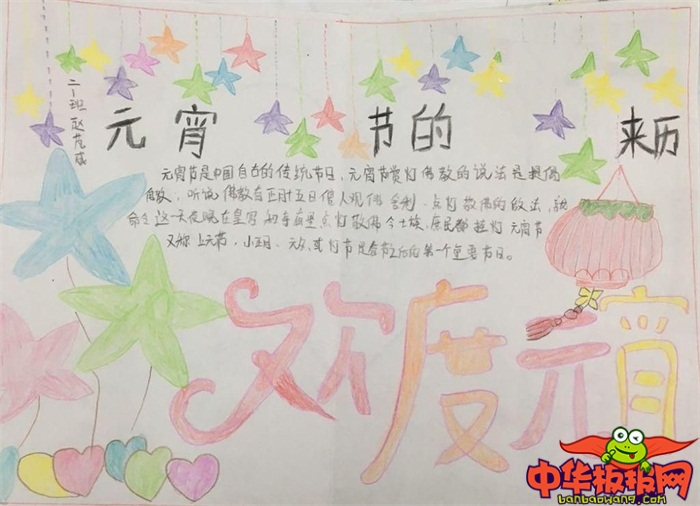 二一班 赵
元宵节的来历
元宵节是中国自古的传统节日、元宵节赏灯佛教的说法是提倡
佛教，听说佛教有正月十五日僧人观佛舍利、点灯敬佛的做法，就
命令这一天夜晚在皇宫和寺庙里点灯敬佛令士族、庶民都挂灯 元宵节
又称上元节，小正月、元夕，或灯节是春节之后的第一个重要节日。
欢度元宵
中华板报网
banbaowang.com